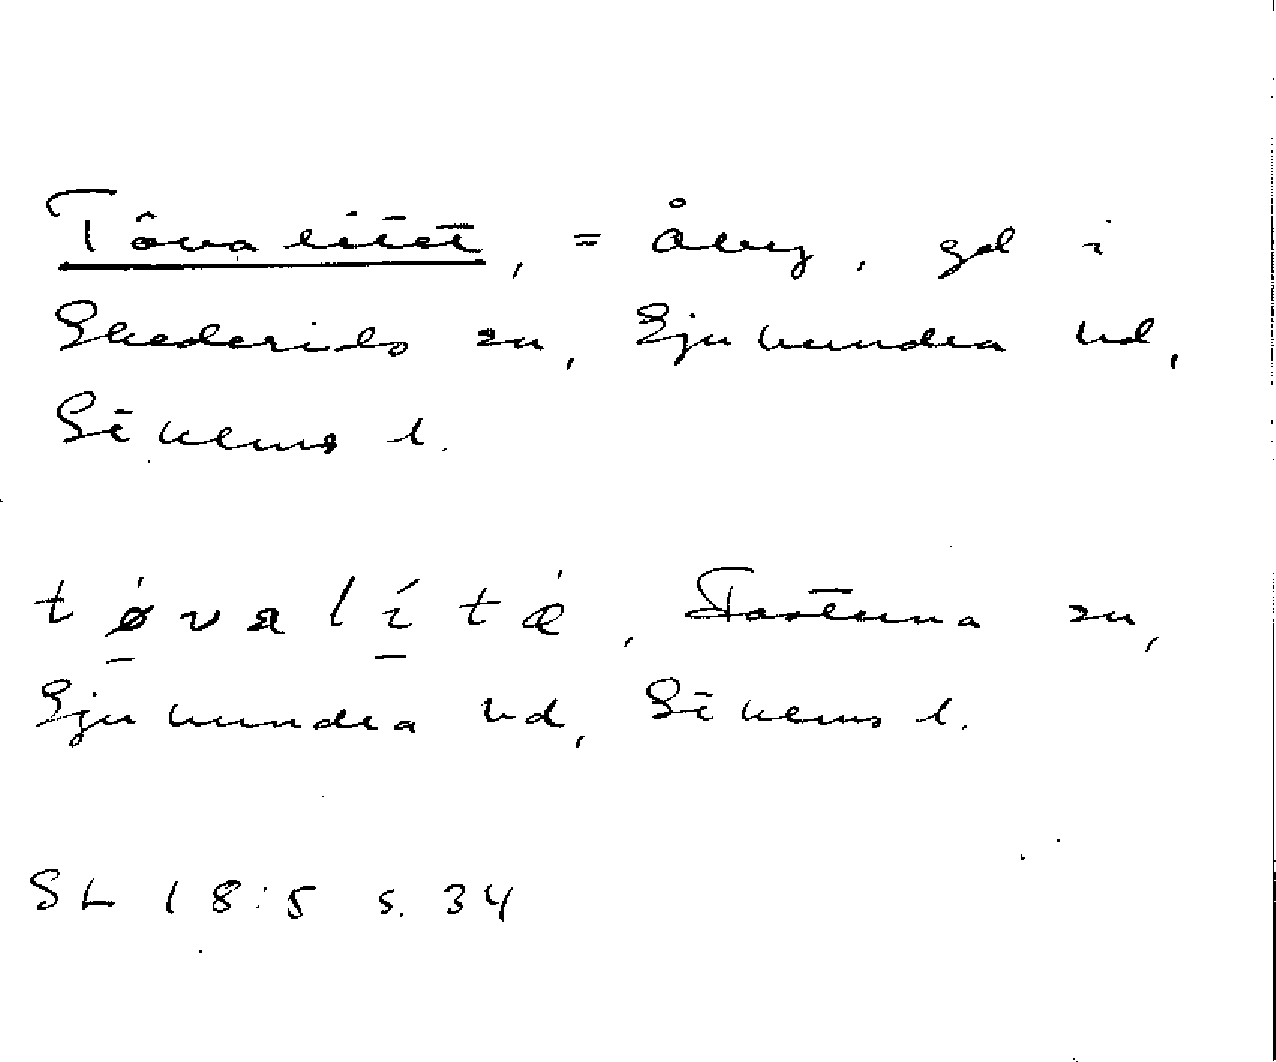 Tôvalitet, = Åby, gd i
Skederids sn, Sjuhundra hd,
Sthlms l.
tøvalítǽ, Rostuna sn,
Sjuhundra hd, Sthlms l.
SL 18:5 s. 34